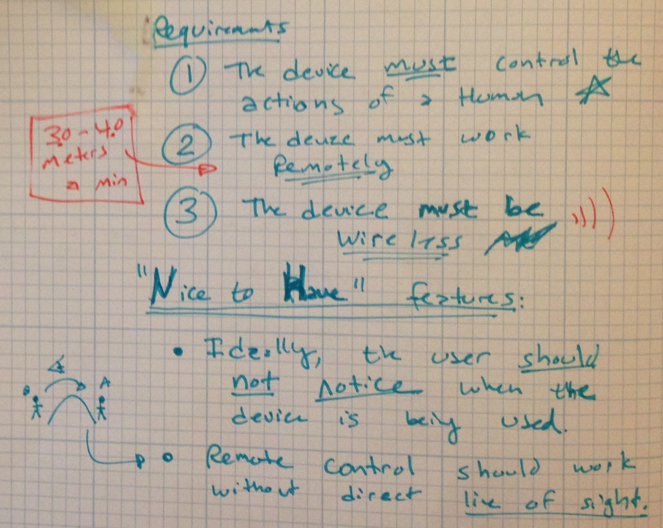 Requirements
① The device must control the
actions of a Human
30-40
meters
a min
② The device must work
Remotely
③ The device must be
wireless
"Nice to Have" features:
• Ideally, the user should
not notice when the
device is being used.
B A
• Remote control should work
without direct line of sight.